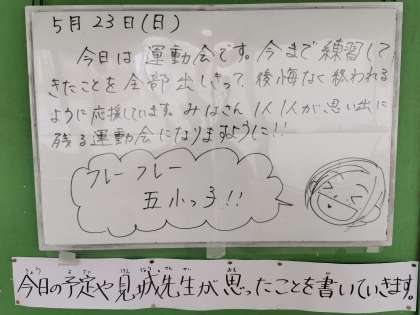 5月23日(日)
今日は運動会です。今まで練習して
きたことを全部出しきって、後悔なく終われる
ように応援しています。みなさん1人1人が思い出に
残る運動会になりますように!!
フレーフレー
五小っ子!!
今日の予定や見城先生が思ったことを書いていきます。